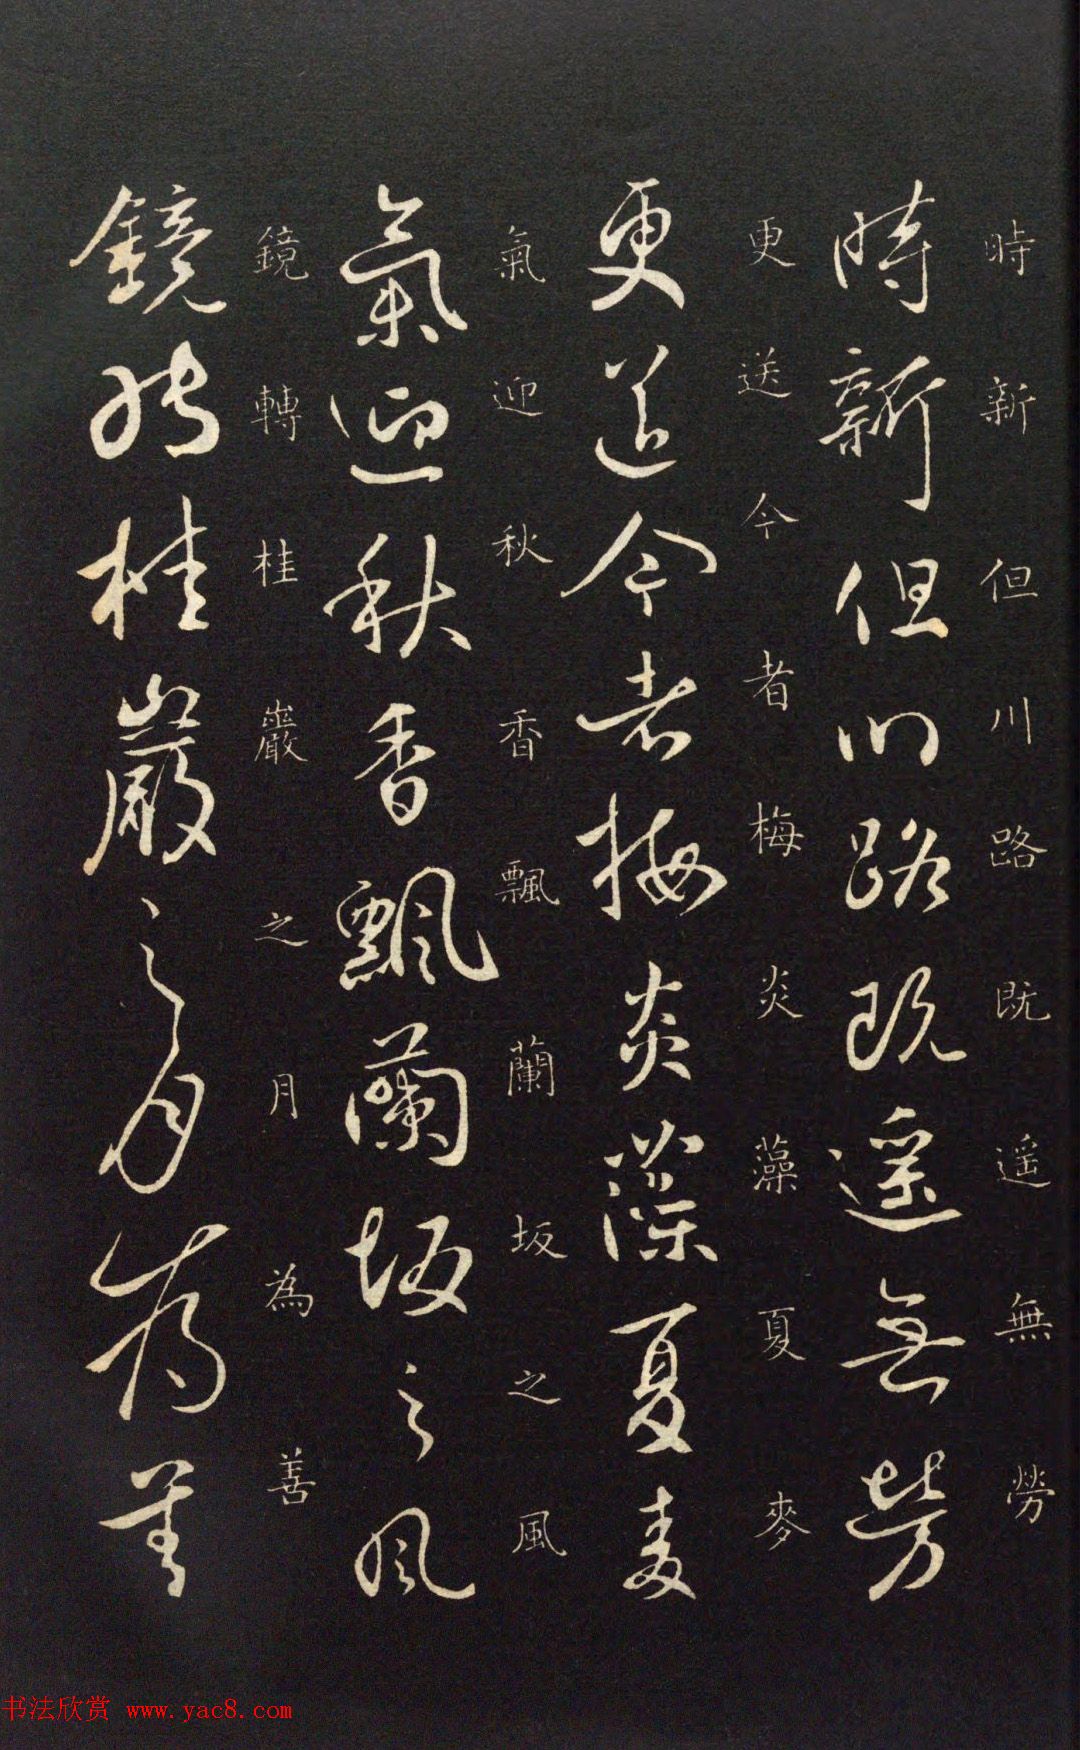 時新但川路既遥無勞
時新但川路既遥無勞
更送今者梅炎藻夏麥
更送今者梅炎藻夏麥
氣迎秋香飄蘭坂之風
氣迎秋香飄蘭坂之風
鏡轉桂巖之月為善
鏡轉桂巖之月為善
书法欣赏 www.yac8.com